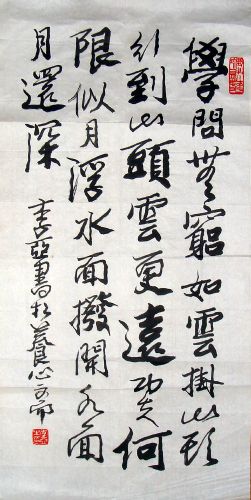 學問無窮如雲掛山頭
行到山頭雲更遠功夫何
限似月浮水面撥開水面
月還深
亞書於養心